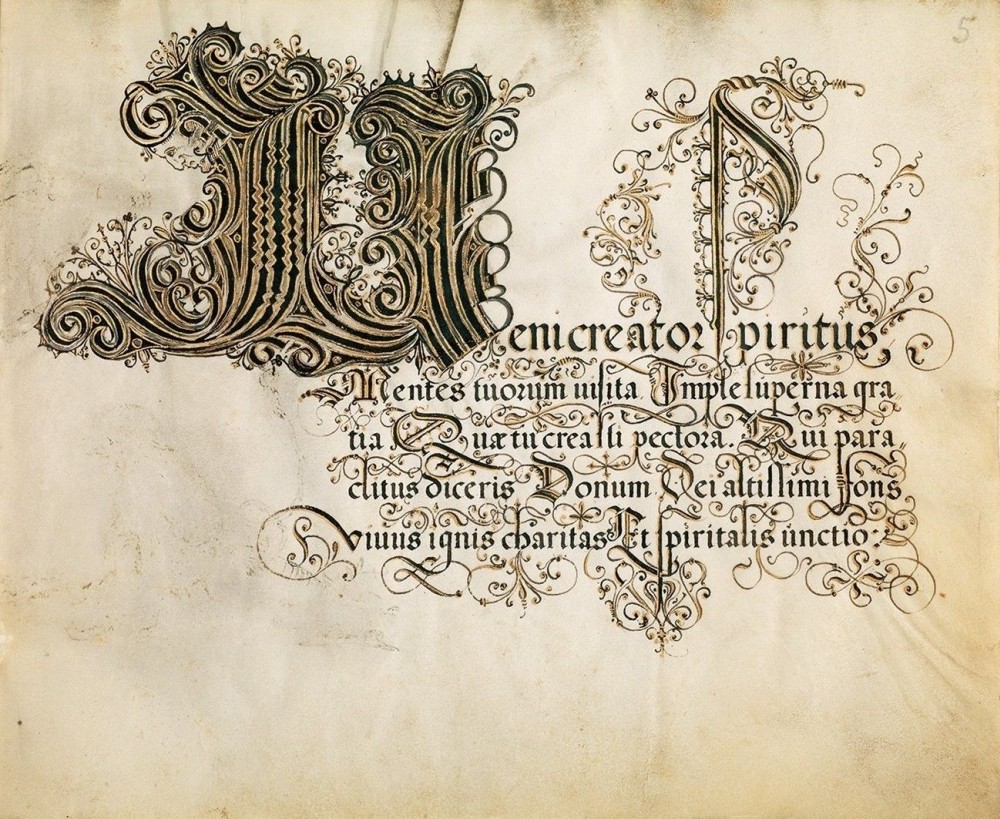 5
Veni creator spiritus,
Mentes tuorum uisita. Imple superna gra
tia Quæ tu creasti pectora. Qui para,,
clitus diceris Donum Dei altissimi fons
viuus ignis charitas Et spiritalis unctio: